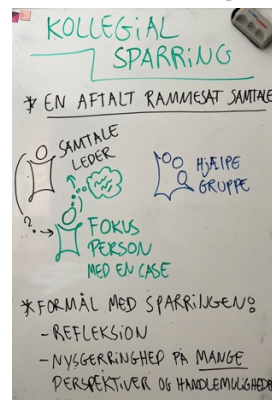 KOLLEGIAL
SPARRING
* EN AFTALT RAMMESAT SAMTALE
SAMTALE
LEDER
HJÆLPE
GRUPPE
?
FOKUS
PERSON
MED EN CASE
* FORMÅL MED SPARRINGEN:
- REFLEKSION
- NYSGERRINGHED PÅ MANGE
PERSPEKTIVER OG HANDLEMULIGHEDER